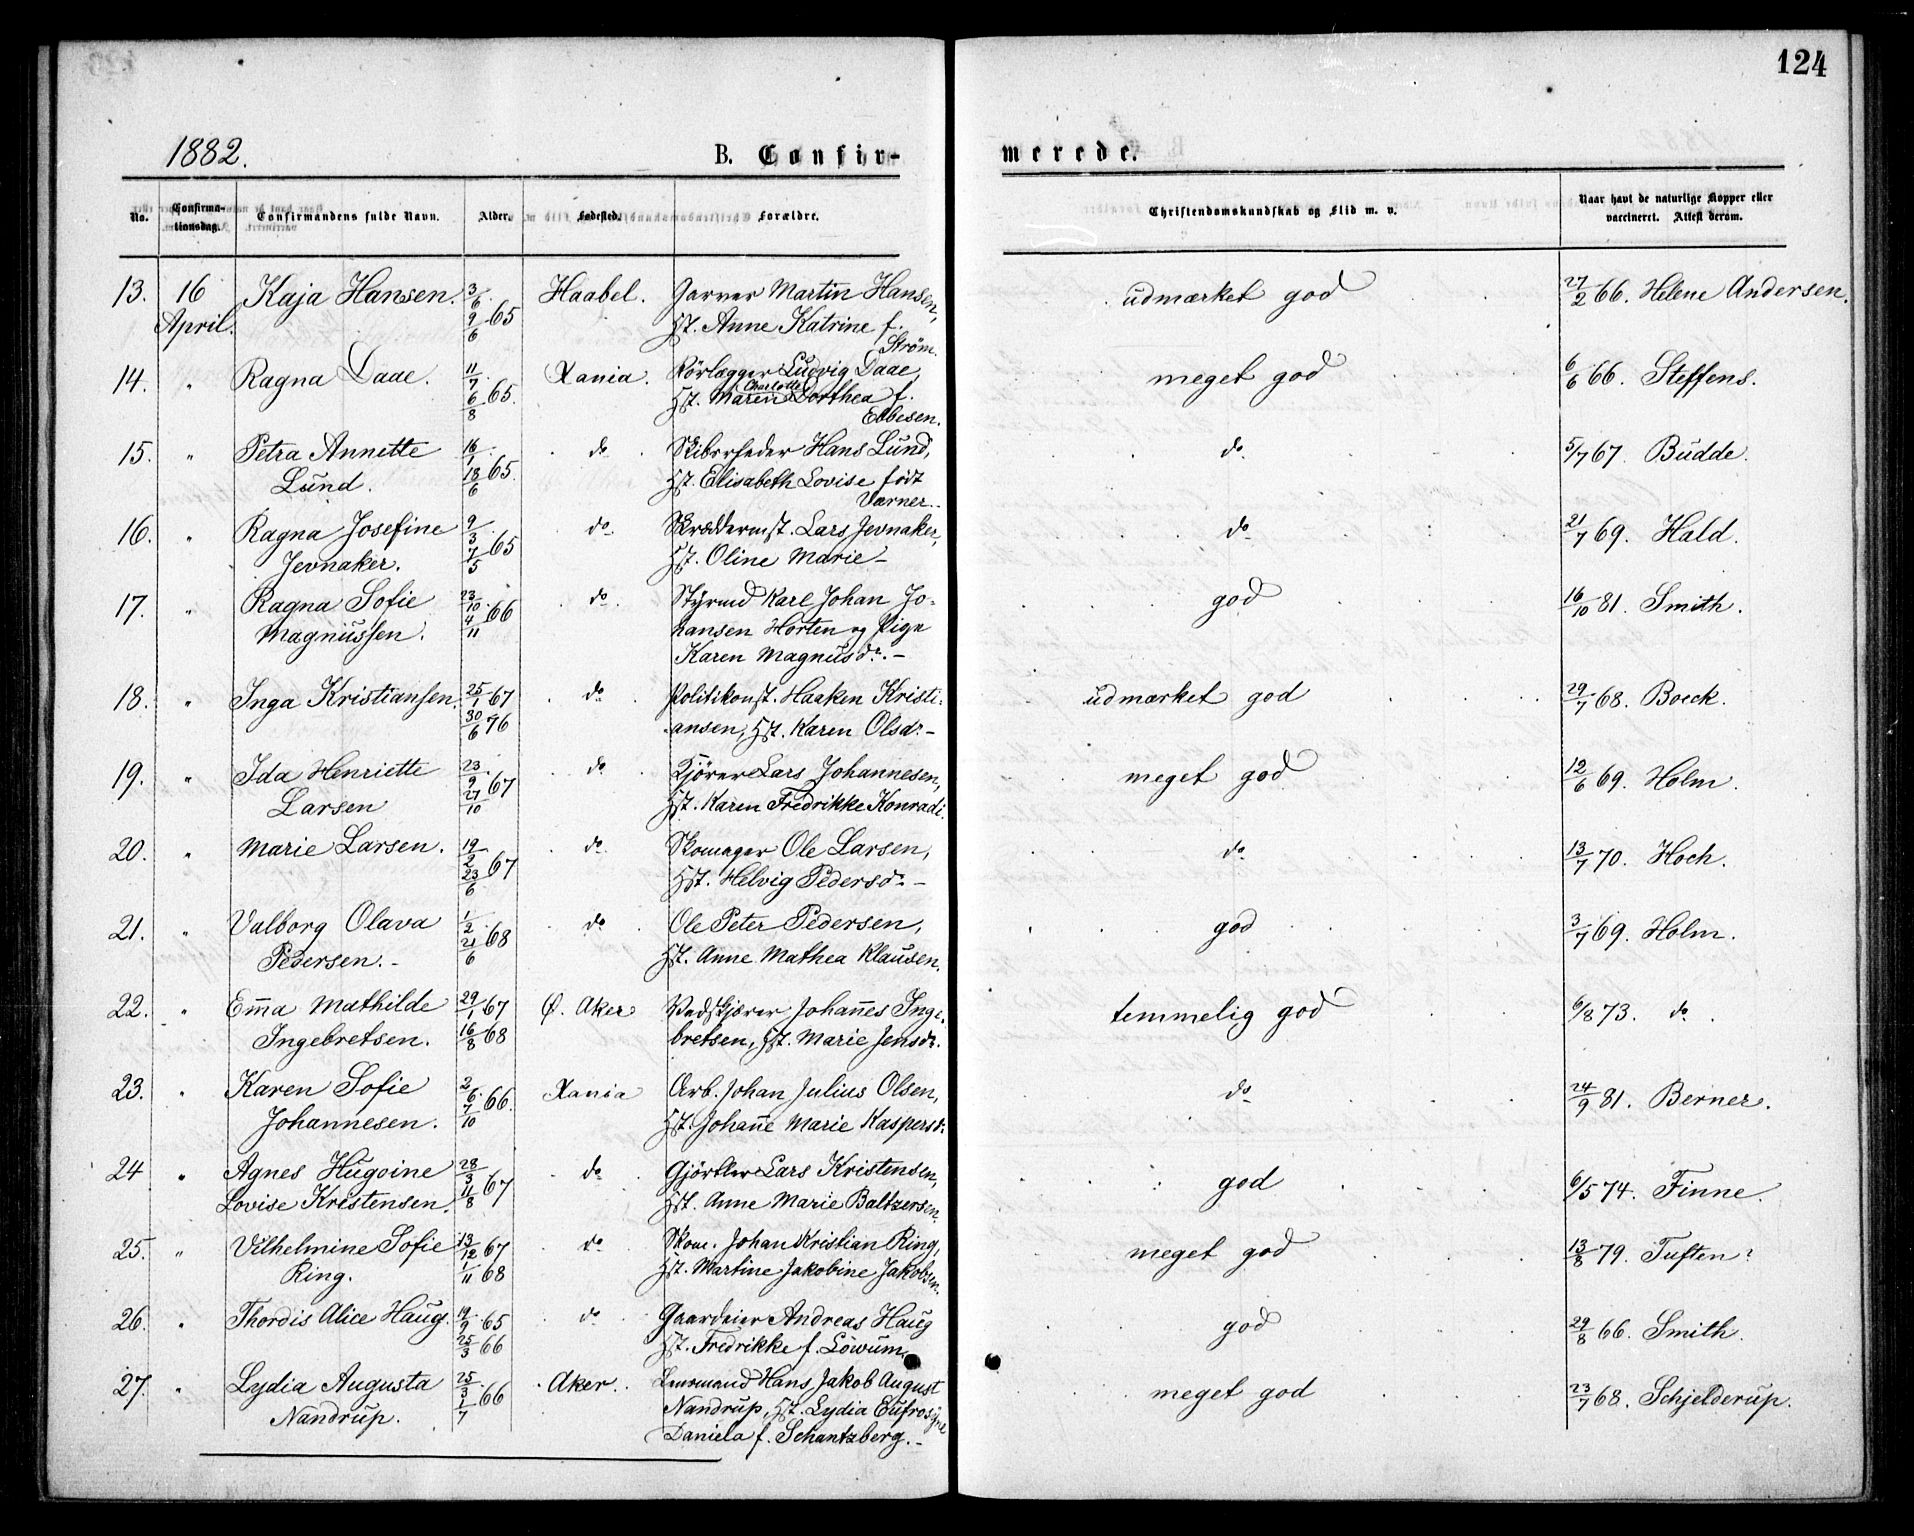 124
1882. B. Confir- merede.
No. Confirma-tionsdag. Confirmandens fulde Navn. Alder. Fødested. Forældre. Christendomskundskab og Flid m. v. Naar havt de naturlige Kopper eller vaccineret. Attest derom.
13. 16 April. Kaja Hansen. 3/6 9/6 65 Haabel. Garver Martin Hansen, udmærket god 27/2 66. Helene Andersen.
Hst. Anne Katrine f.
Strøm.
14. " Ragna Daae. 11/7 6/8 65. Xania. Rörlægger Ludvig Daae, meget god 6/6 66. Steffens.
Hst. Maren Charlotte Dorthea f.
Ebbesen.
15. " Petra Annette 16/1 18/6 65. do Skibsrheder Hans Lund, do 5/7 67. Budde.
Lund. Hst. Elisabeth Lovise født
Værner.
16. " Ragna Josefine 9/3 7/5 65 do Skræddermst. Lars Jevnaker, do 21/7 69. Hald.
Jevnaker. Hst. Oline Marie-
17. " Ragna Sofie 23/10 4/11 66 do Styrmd Karl Johan Jo- god 16/10 81. Smith.
Magnussen. hansen Horten og Pige
Karen Magnusdr.-
18. " Inga Kristiansen. 25/1 67 do Politikonst. Haaken Kristi- udmærket god 29/7 68. Boeck.
30/6 76 ansen, Hst. Karen Olsdr-
19. " Ida Henriette 23/9 27/10 67 do Kjörer Lars Johannesen, meget god 12/6 69. Holm.
Larsen Hst. Karen Fredrikke Konradi.
20. " Marie Larsen. 19/2 23/6 67 do Skomager Ole Larsen, do 13/7 70. Hoch.
Hst. Helvig Pedersdr-
21. " Valborg Olava 1/2 21/6 68 do Ole Peter Pedersen, god 3/7 69. Holm.
Pedersen.- Hst. Anne Mathea Klausen.
22. " Em̄a Mathilde 29/1 67 Ø. Aker Vedskjærer Johan̄es Inge- temmelig god 6/8 73. do.
Ingebretsen. 16/8 68 bretsen, Hst. Marie Jensdr.
23. " Karen Sofie 2/6 7/10 66. Xania Arb. Johan Julius Olsen, do 24/9 81. Berner.
Johannesen. Hst. Johan̄e Marie Kaspersdr
24 " Agnes Hugoine 28/3 11/8 67 do Gjörtler Lars Kristensen, god 6/5 74. Finne.
Lovise Kristensen. Hst. Anne Marie Baltzersen.
25. " Vilhelmine Sofie 13/12 67 do Skom. Johan Kristian Ring, meget god 13/8 79. Tuften?
Ring. 1/11 68 Hst. Martine Jakobine Jakobsen.
26. " Thordis Alice Haug. 19/9 65 do Gaardeier Andreas Haug god 29/8 66. Smith.
25/3 66 Hst. Fredrikke f. Löwum
27. " Lydia Augusta 25/3 1/7 66 Aker. Lensmand Hans Jakob August meget god 23/7 68. Schjelderup.
Nandrup. Nandrup, Hst. Lydia Eufrosyne
Daniela f. Schantzberg.-